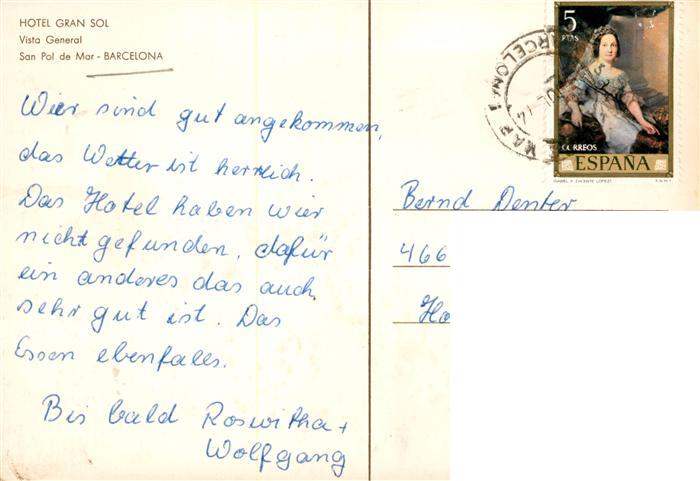 HOTEL GRAN SOL
Vista General
San Pol de Mar - BARCELONA
Wier sind gut angekommen,
das Wetter ist herrlich.
Das Hotel haben wier
nicht gefunden, dafür
ein anderes das auch
sehr gut ist. Das
Essen ebenfalls.
Bis bald Roswitha +
Wolfgang
5
PTAS
CORREOS
ESPAÑA
Bernd Denter
466